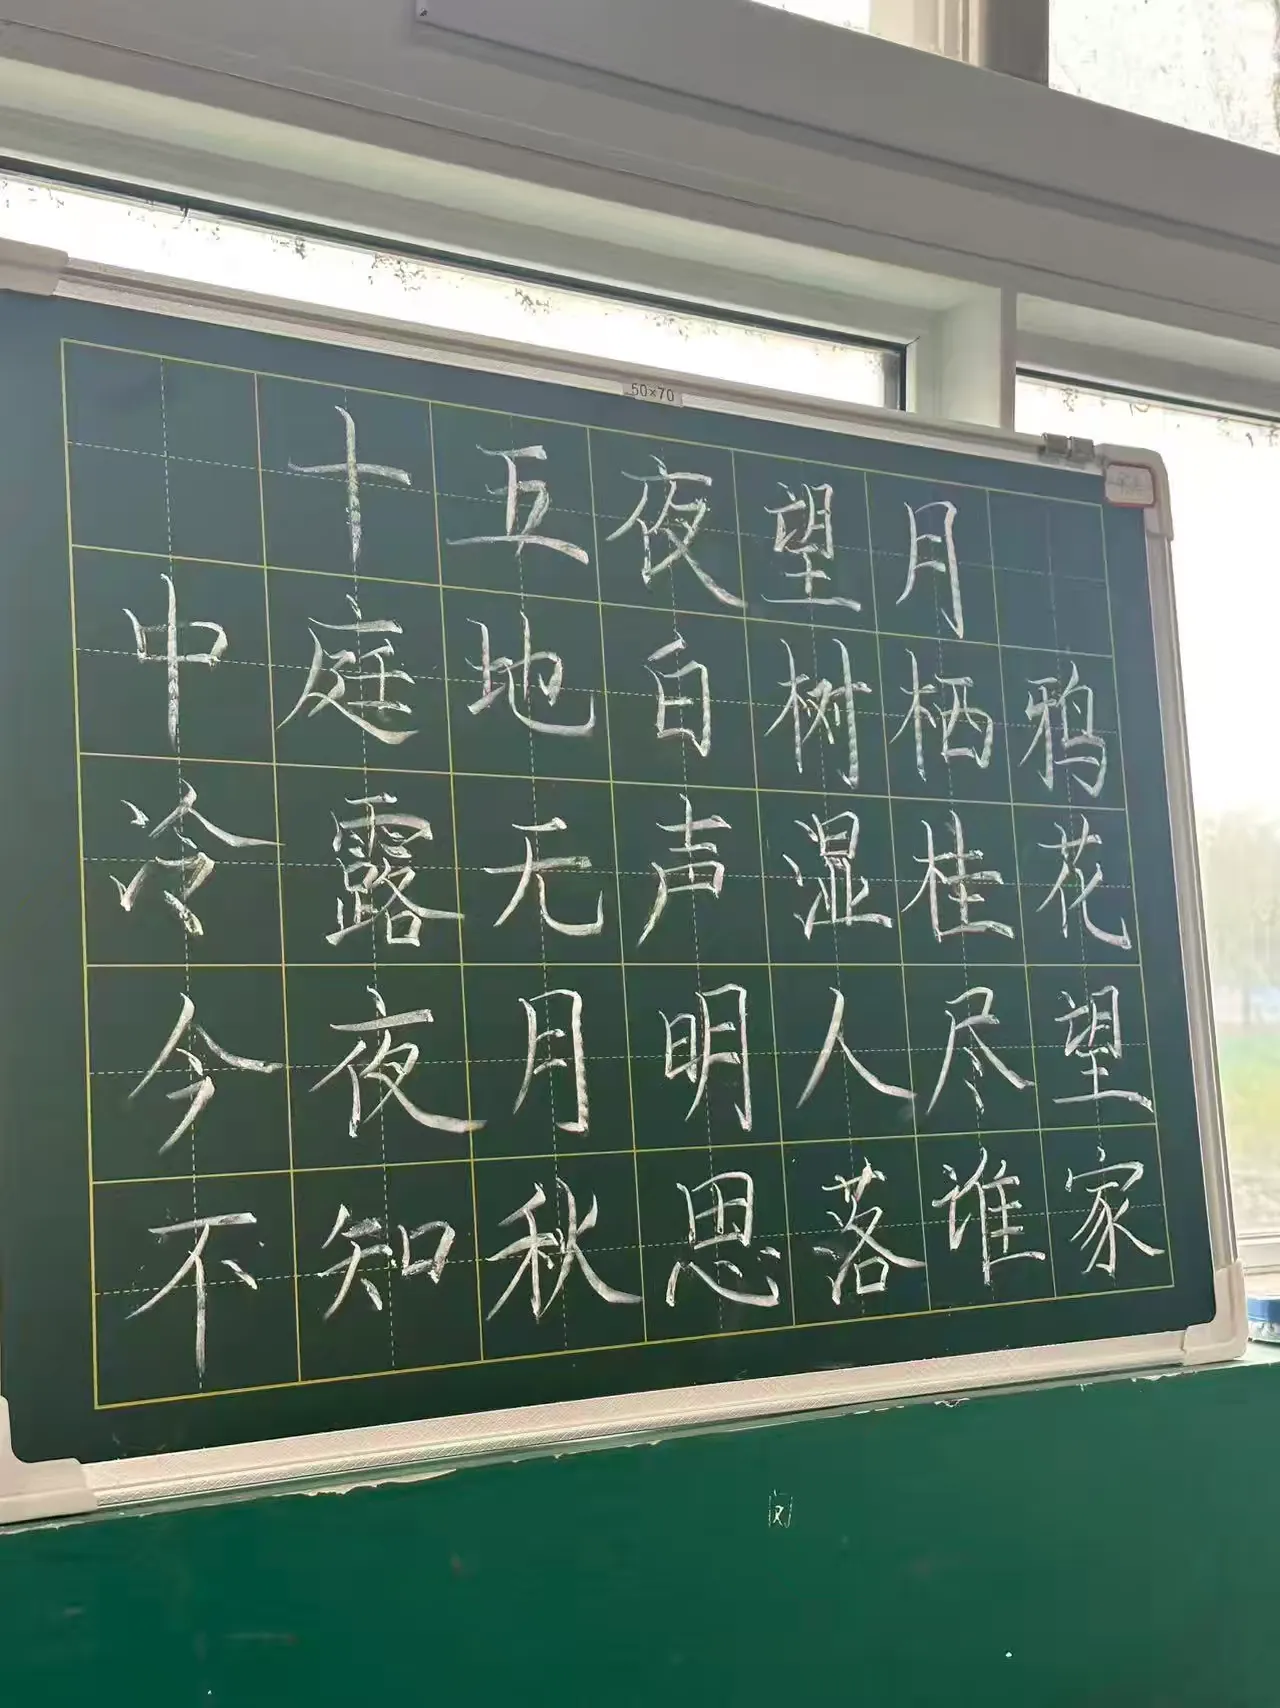 50×70
十五夜望月
中庭地白树栖鸦
冷露无声湿桂花
今夜月明人尽望
不知秋思落谁家